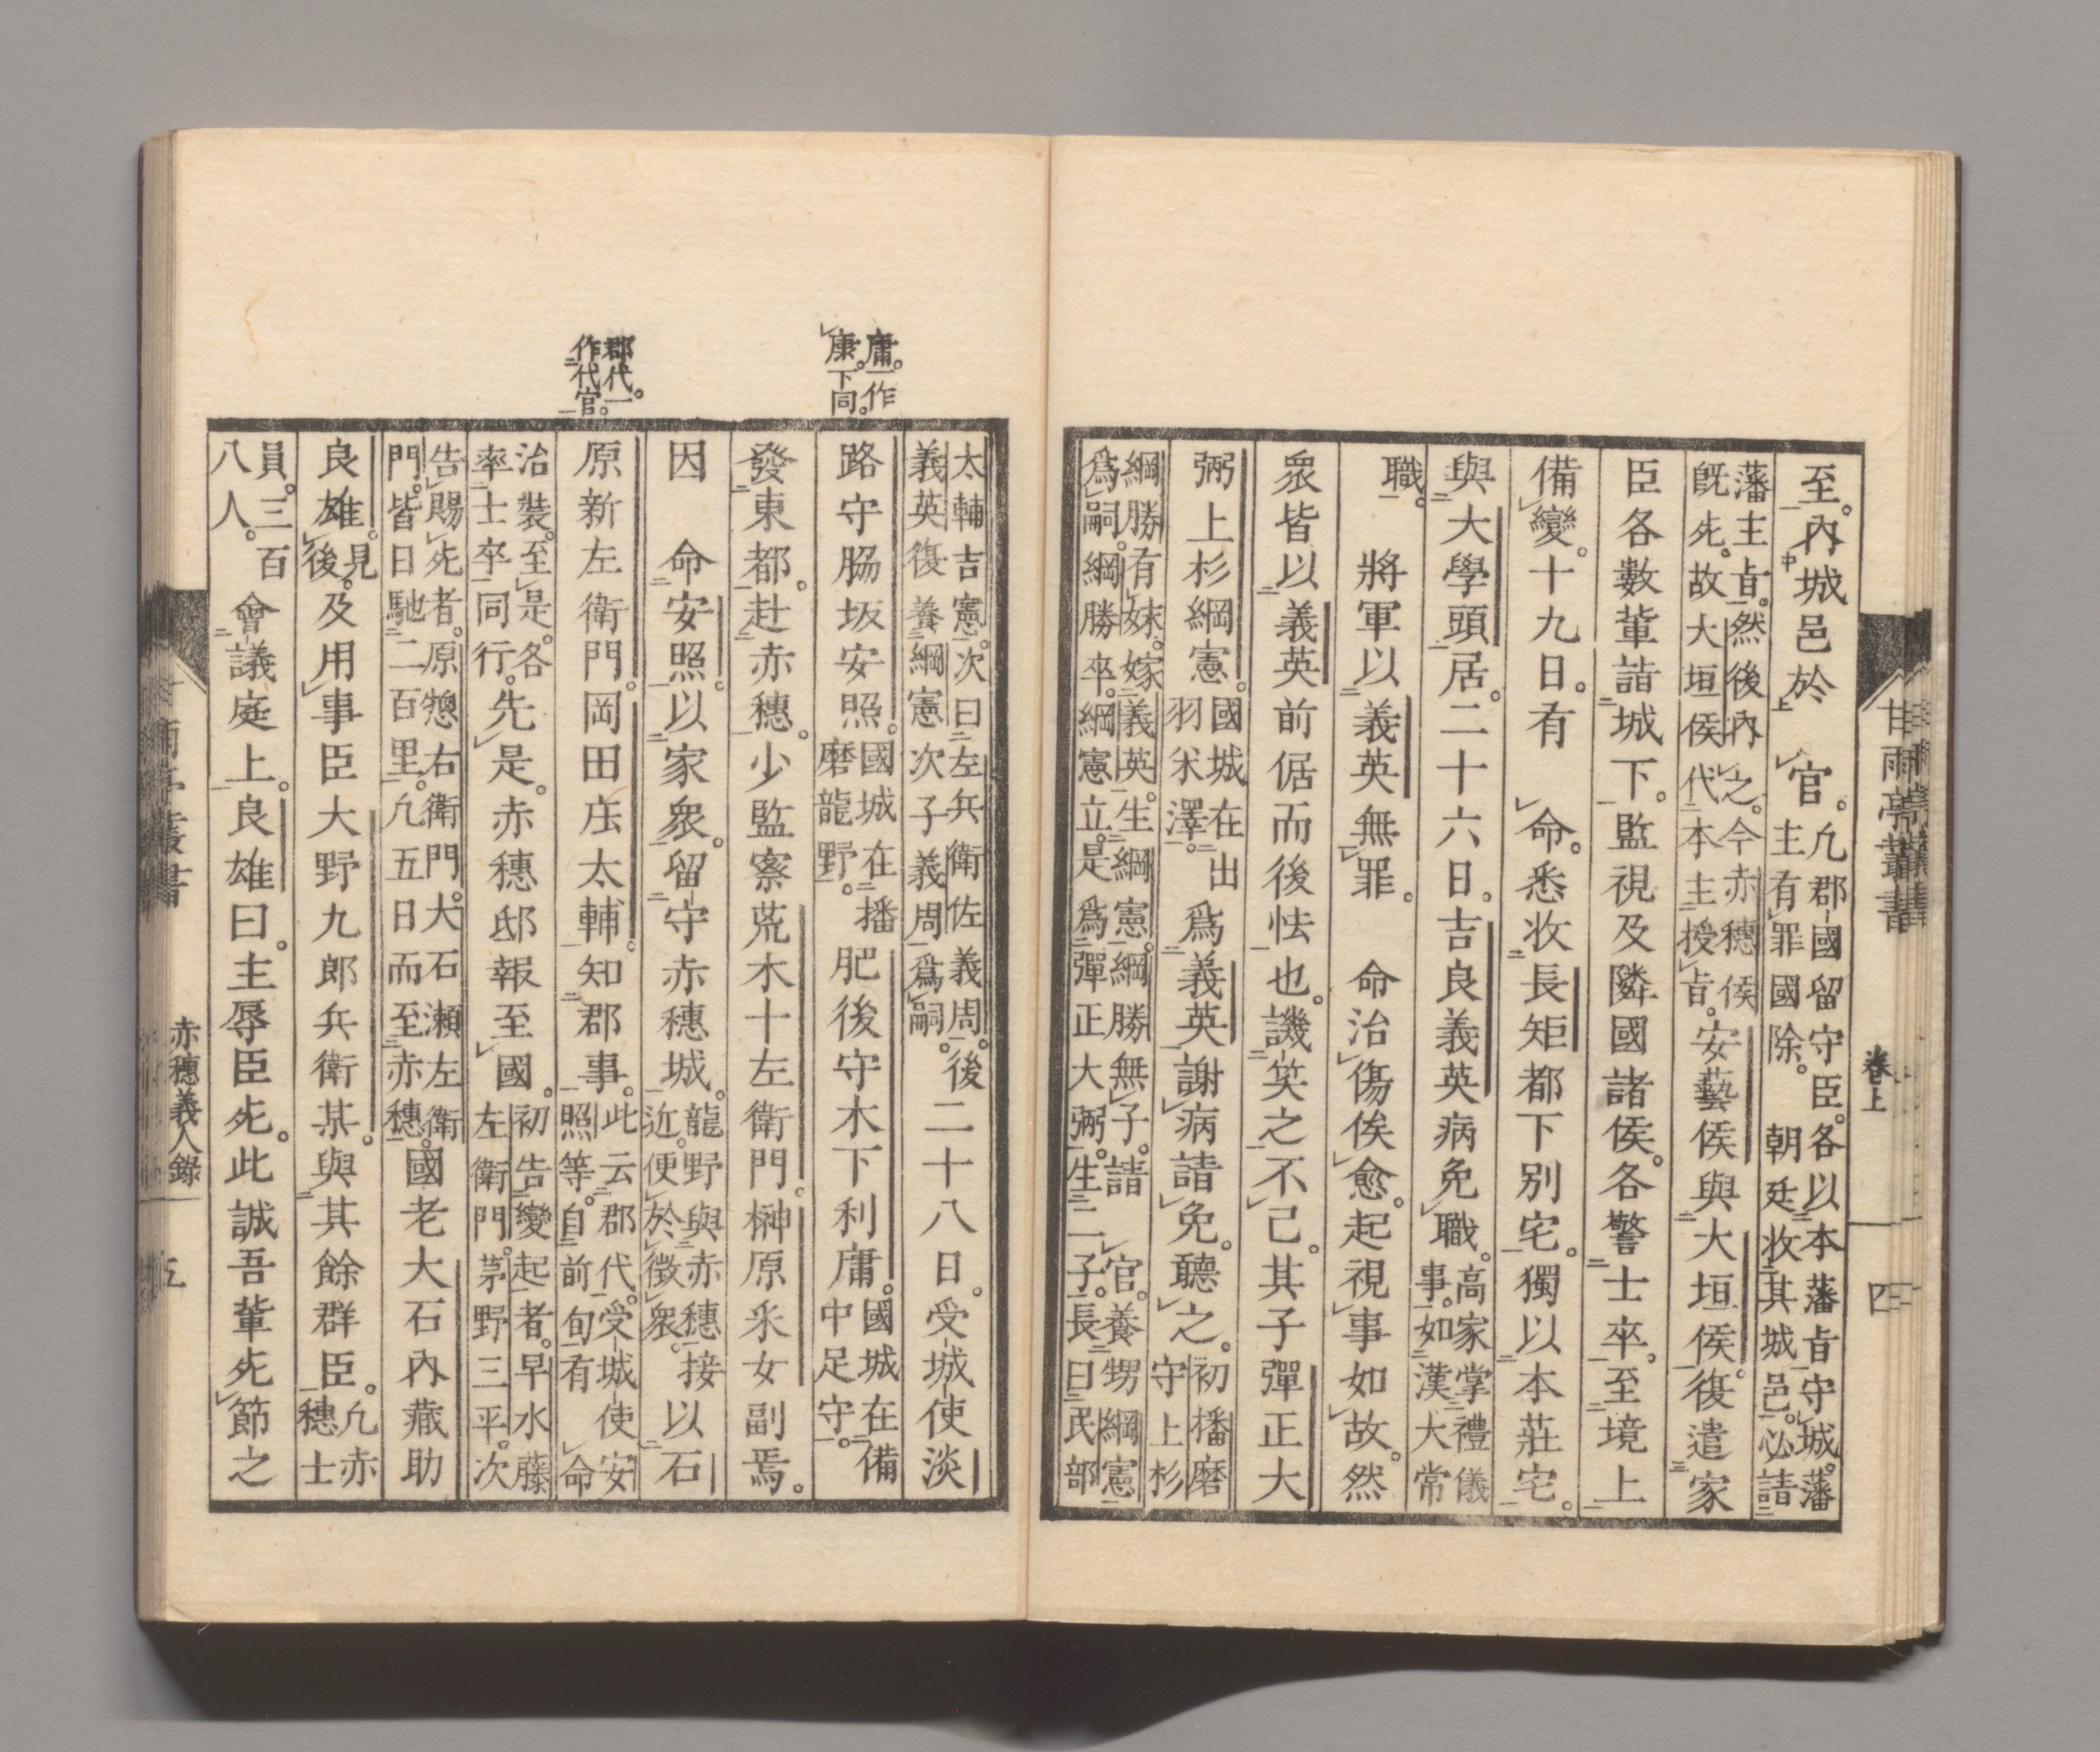 甘雨亭叢書
卷上
四
至。內城邑於 官。凢郡國留守臣。各以本藩旨守城。藩主有罪國除。 朝廷收其城邑。必請
藩主旨。然後內之。今赤穗侯既死。故大垣侯代本主授旨。安藝侯與大垣侯。復遣家
臣各數輩詣城下。監視及隣國諸侯。各警士卒。至境上
備變。十九日。有 命。悉收長矩都下別宅。獨以本莊宅。
與大學頭居。二十六日。吉良義英病免職。高家掌禮儀事。如漢大常
職。 將軍以義英無罪。 命治傷俟愈。起視事如故。然
衆皆以義英前倨而後怯也。譏笑之不已。其子彈正大
弼上杉綱憲。國城在出羽米澤。爲義英謝病請免。聽之。初播磨守上杉
綱勝有妹。嫁義英。生綱憲。綱勝無子。請 官。養甥綱憲爲嗣。綱勝卒。綱憲立。是爲彈正大弼。生二子。長曰民部
太輔吉憲。次曰左兵衛佐義周。後義英復養綱憲次子義周爲嗣。二十八日。受城使淡
路守脇坂安照。國城在播磨龍野。肥後守木下利庸。國城在備中足守。
發東都。赴赤穗。少監察荒木十左衛門。榊原采女副焉。
因 命安照。以家衆。留守赤穗城。龍野與赤穗接近。便於徵衆。以石
原新左衛門。岡田庄太輔。知郡事。此云郡代。受城使安照等。自前旬有命
治裝。至是。各率士卒同行。先是。赤穗邸報至國。初告變起者。早水藤左衛門。茅野三平。次
告賜死者。原惣右衛門。大石瀬左衛門。皆日馳二百里。凢五日而至赤穗。國老大石內藏助
良雄。見後。及用事臣大野九郎兵衛某。與其餘群臣。凢赤穗士
員。三百八人。會議庭上。良雄曰。主辱臣死。此誠吾輩死節之
庸。一作康。下同。
郡代。一作代官。
赤穗義人錄
五